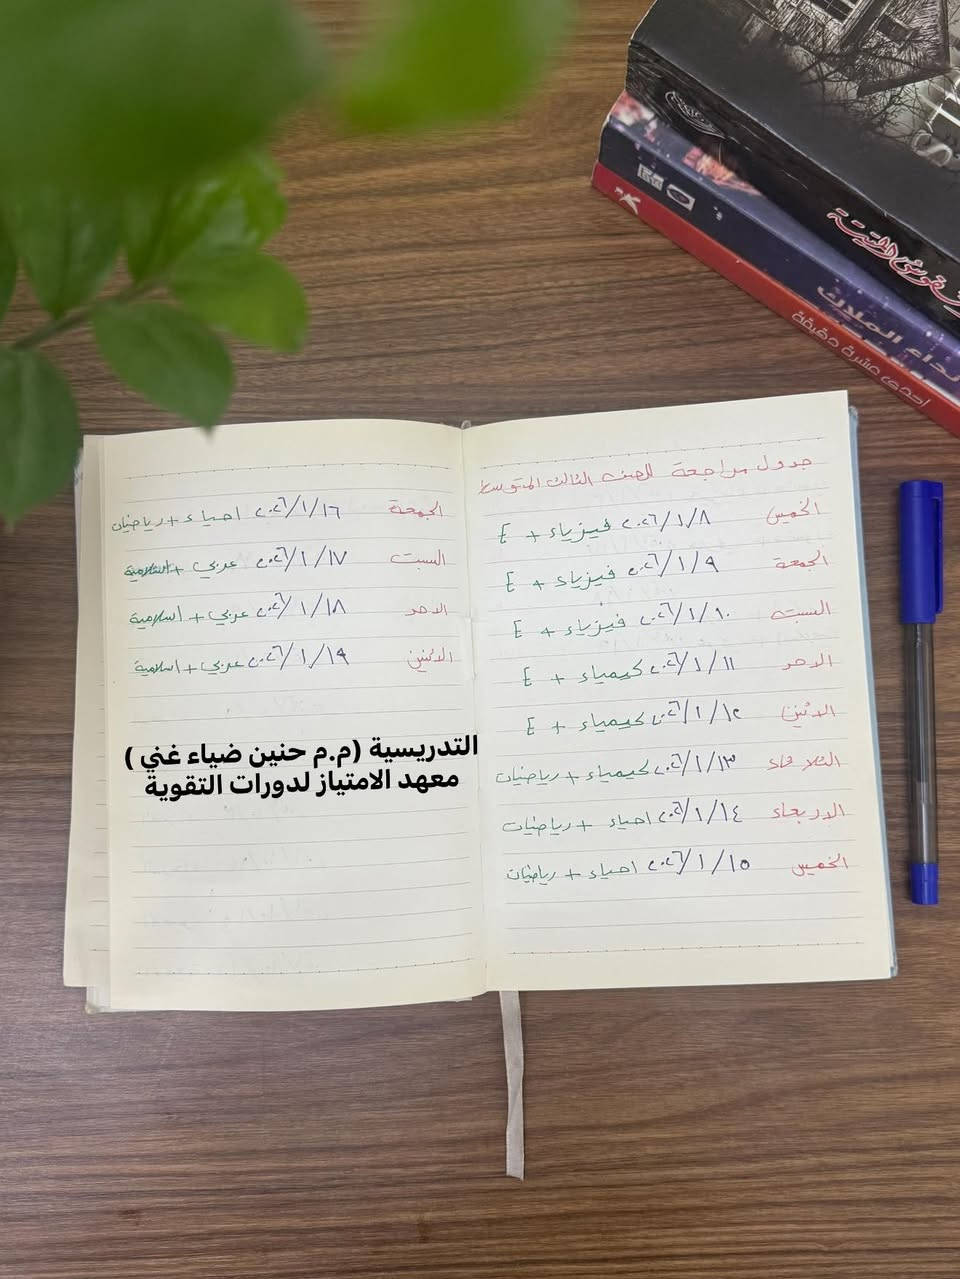 جدول مراجعة للصف الثالث المتوسط
الخميس ٢٠٢٦/١/٨ فيزياء + E
الجمعة ٢٠٢٦/١/٩ فيزياء + E
السبت ٢٠٢٦/١/١٠ فيزياء + E
الاحد ٢٠٢٦/١/١١ كيمياء + E
الاثنين ٢٠٢٦/١/١٢ كيمياء + E
الثلاثاء ٢٠٢٦/١/١٣ كيمياء + رياضيات
الاربعاء ٢٠٢٦/١/١٤ احياء + رياضيات
الخميس ٢٠٢٦/١/١٥ احياء + رياضيات
الجمعة ٢٠٢٦/١/١٦ احياء + رياضيات
السبت ٢٠٢٦/١/١٧ عربي + اسلامية
الاحد ٢٠٢٦/١/١٨ عربي + اسلامية
الاثنين ٢٠٢٦/١/١٩ عربي + اسلامية
التدريسية (م.م حنين ضياء غني )
معهد الامتياز لدورات التقوية
نداء الملاك
احدى عشرة دقيقة